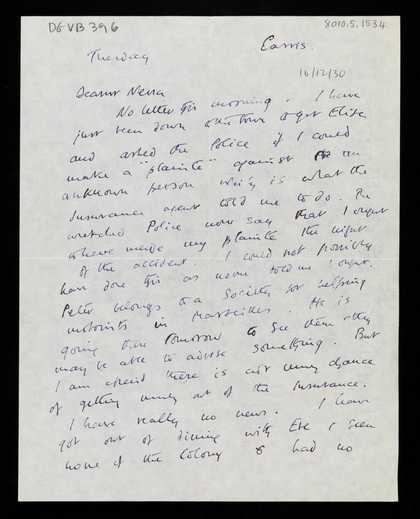 DG VB 396
8010.5.1534
Tuesday Cassis.
16/12/30
Dearest Nessa
No letter this morning. I have
just been down to the town to get Elise
and asked the Police if I could
make a "plainte" against an
unknown person which is what the
Insurance agent told me to do. The
wretched Police now say that I ought
to have made my plainte the night
of the accident. I could not possibly
have done this as no one told me I ought.
Peter belongs to a Society for helping
motorists in Marseilles. He is
going there tomorrow to see them & they
may be able to advise something. But
I am afraid there is not much chance
of getting money out of the Insurance.
I have really no news. I have
got out of dining with Eve & seen
none of the Colony & had no